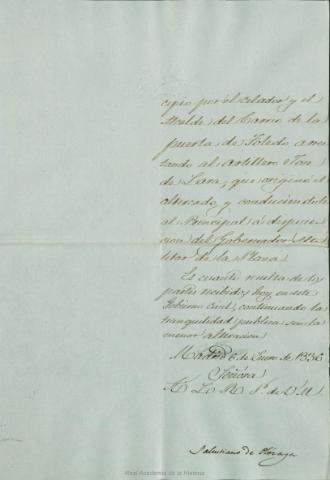 cipio por el celador y el
Alcalde del Barrio de la
puerta de Toledo, arres
tando al artillero Jon
de Lara, que originó el
altercado y conduciendole
al Principal á dispos
cion del Gobernador Mi
litar de la Plaza.
Es cuanto resulta de los
partes recibidos hoy en este
Gobierno Civil, continuando la
tranquilidad publica sin la
menor alteracion.
Madrid 6 de Enero de 1836
Señora
A L. R. P. de V. M.
Salustiano de Olozaga
Real Academia de la Historia